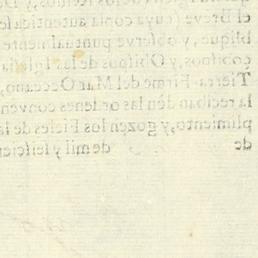 el Breve (cuya copia autentica ſe
blique, y obſerve puntualmente
çobiſpos, y Obiſpos de las Igleſia
Tierra-Firme del Mar Occeano,
la reciban dèn las ordenes conven
plimiento, y gozen los Fieles de la
de de mil y ſeiſcien